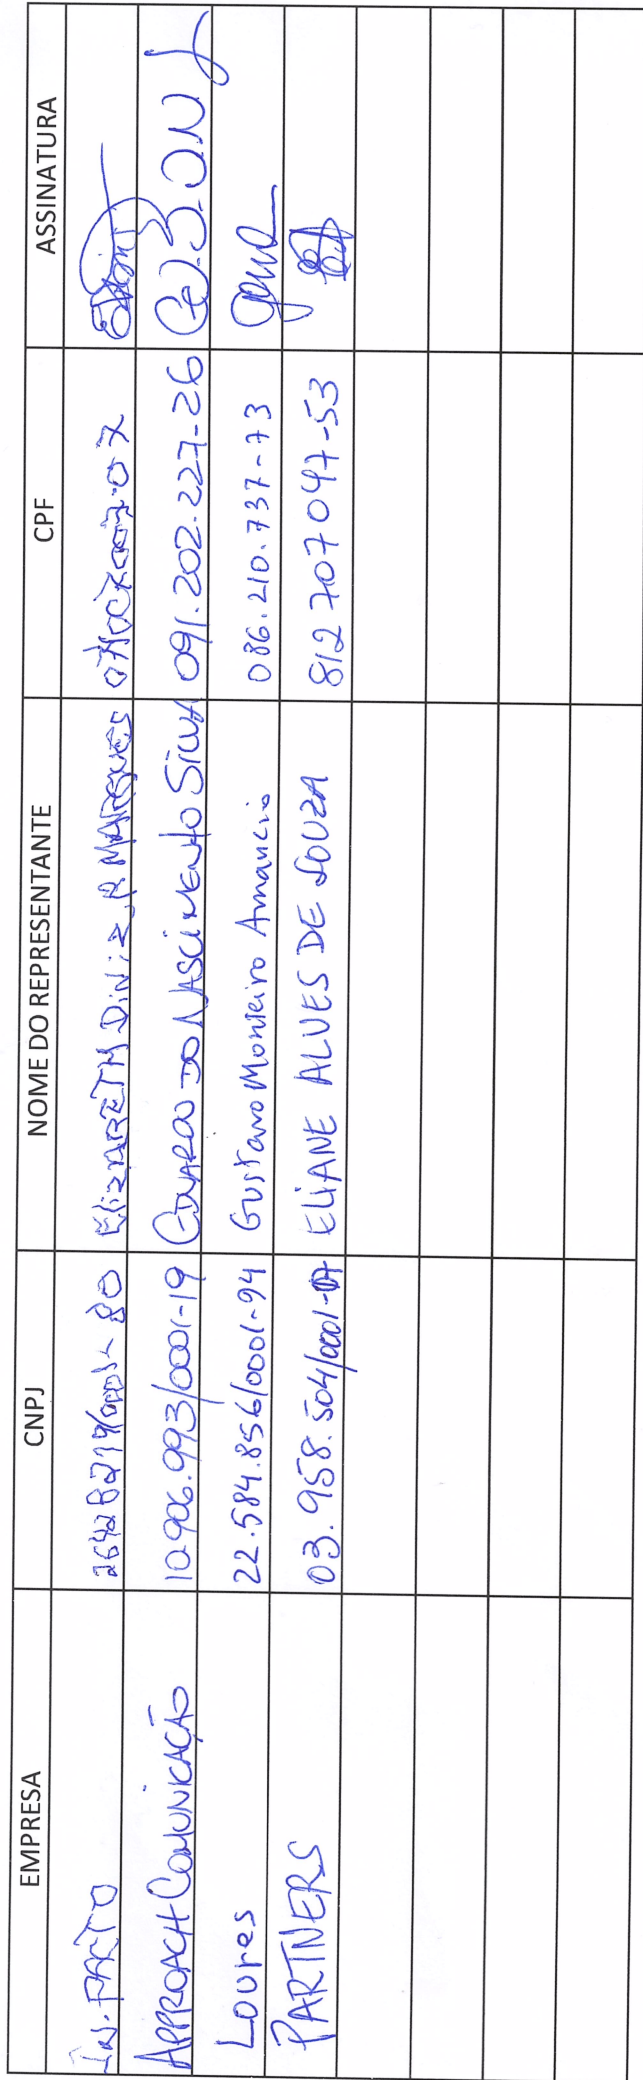 EMPRESA CNPJ NOME DO REPRESENTANTE CPF ASSINATURA
In.PACTO ELIZABETH DINIZ R MARQUES
APPROACH COMUNICAÇÃO 10.906.993/0001-19 EDUARDO DO NASCIMENTO SILVA 091.202.227-26
Loures 22.584.856/0001-94 Gustavo Monteiro Amancio 086.210.737-73
PARTNERS 03.958.504/0001-07 ELIANE ALVES DE SOUZA 812 707 097-53